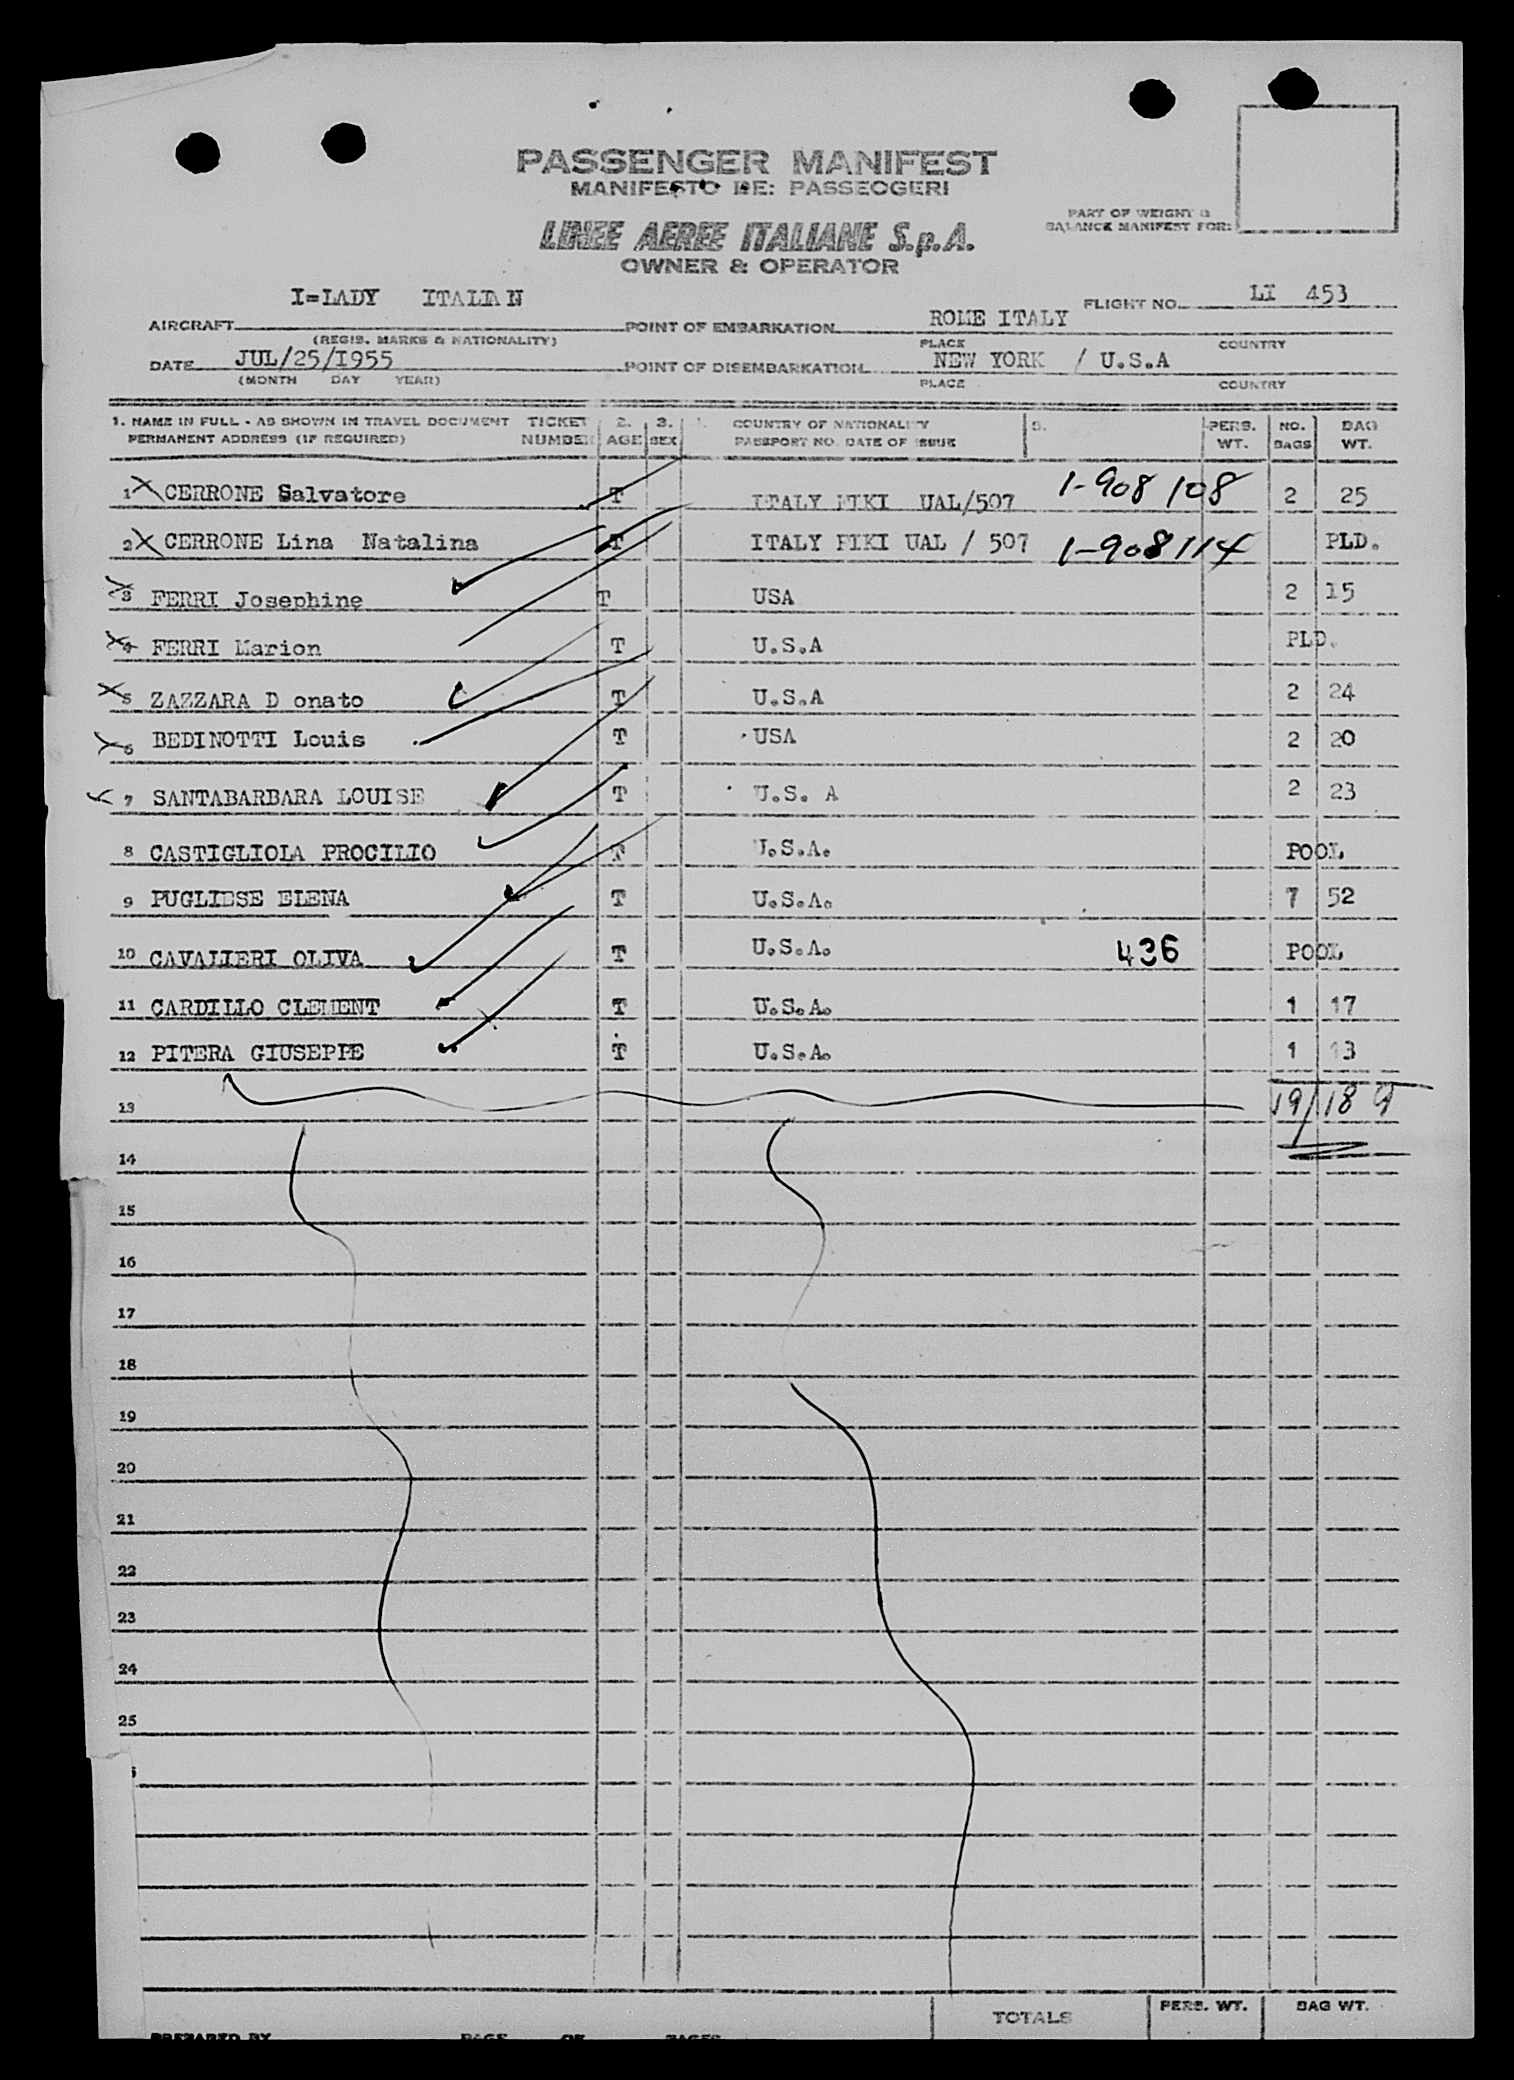 PASSENGER MANIFEST
MANIFESTO DE: PASSEOGERI
LINEE AEREE ITALIANE S.p.A.
OWNER & OPERATOR
PART OF WEIGHT &
BALANCE MANIFEST FOR:
AIRCRAFT I=LADY ITALIAN
(REGIS. MARKS & NATIONALITY)
FLIGHT NO. LI 453
POINT OF EMBARKATION ROME ITALY
PLACE COUNTRY
DATE JUL/25/I955
(MONTH DAY YEAR)
POINT OF DISEMBARKATION NEW YORK / U.S.A
PLACE COUNTRY
1. NAME IN FULL - AS SHOWN IN TRAVEL DOCUMENT TICKET 2. 3. COUNTRY OF NATIONALITY 5. PERS. NO. BAG
PERMANENT ADDRESS (IF REQUIRED) NUMBER AGE SEX PASSPORT NO. DATE OF ISSUE WT. BAGS WT.
1 CERRONE Salvatore T ITALY UAL/507 1-908 108 2 25
2 CERRONE Lina Natalina T ITALY UAL / 507 1-908114 PLD.
3 FERRI Josephine T USA 2 15
4 FERRI Marion T U.S.A PLD.
5 ZAZZARA D onato T U.S.A 2 24
6 BEDINOTTI Louis T USA 2 20
7 SANTABARBARA LOUISE T U.S. A 2 23
8 CASTIGLIOLA PROCILIO T U.S.A. POOL
9 PUGLIESE ELENA T U.S.A. 7 52
10 CAVALIERI OLIVA T U.S.A. 436 POOL
11 CARDILLO CLEMENT T U.S.A. 1 17
12 PITERA GIUSEPPE T U.S.A. 1 13
13 19/189
14
15
16
17
18
19
20
21
22
23
24
25
TOTALS PERS. WT. BAG WT.
PREPARED BY PAGE OF PAGES